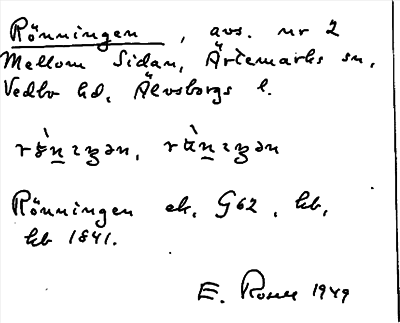 Rönningen, avs. nr 2
Mellom Sidan, Ärtemarks sn,
Vedbo hd, Älvsborgs l.
Rönningen ek. G62, hb,
hb 1841.
E. Rosell 1949